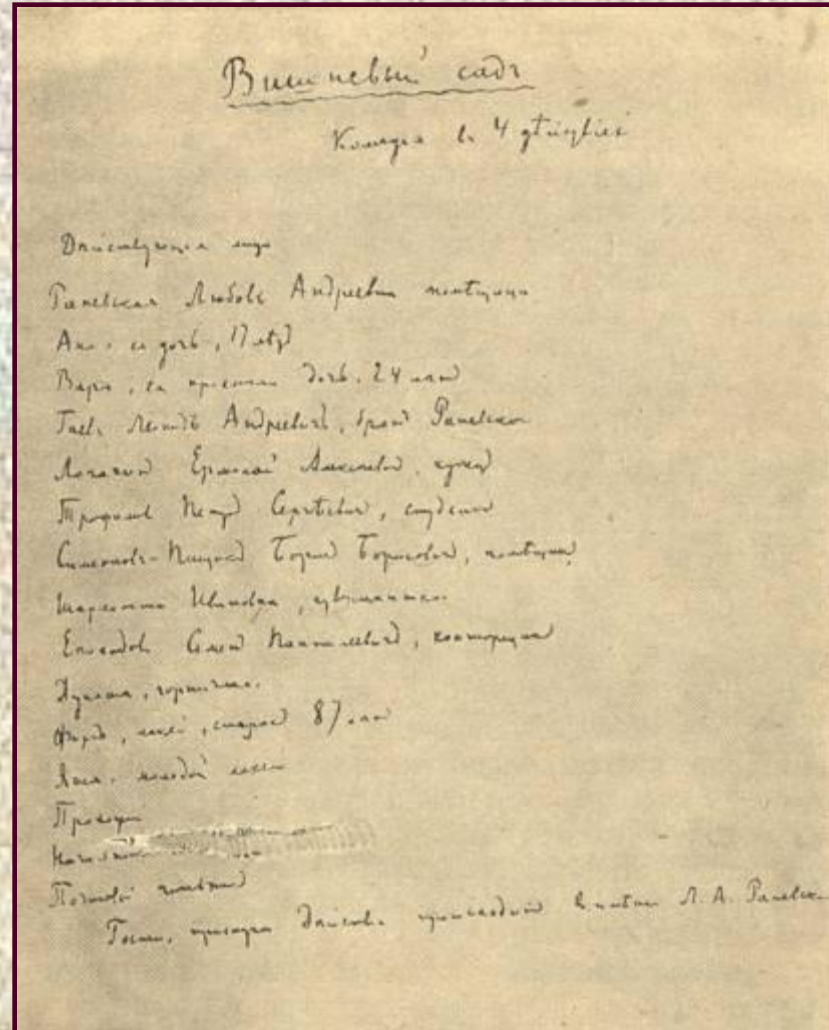 Вишневый садъ
Комедия въ 4 действіяхъ
Действующія лица
Раневская Любовь Андреевна помѣщица
Аня, ея дочь, 17 летъ
Варя, ея приемная дочь, 24 летъ
Гаевъ Леонидъ Андреевичъ, братъ Раневской
Лопахинъ Ермолай Алексеевичъ, купецъ
Трофимовъ Петръ Сергѣевичъ, студентъ
Симеоновъ-Пищикъ Борисъ Борисовичъ, помѣщикъ
Шарлотта Ивановна, гувернантка
Епиходовъ Семенъ Пантелеевичъ, конторщикъ
Дуняша, горничная.
Фирсъ, лакей, старикъ 87 летъ
Яша, молодой лакей
Прохожій
Почтовый чиновникъ
Гости, прислуга Действіе происходитъ въ имѣніи Л. А. Раневской